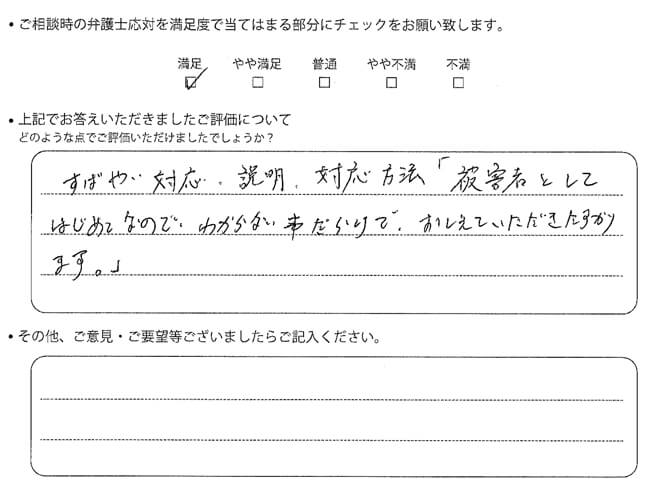 • ご相談時の弁護士応対を満足度で当てはまる部分にチェックをお願い致します。
満足 やや満足 普通 やや不満 不満
☑ ☐ ☐ ☐ ☐
• 上記でお答えいただきましたご評価について
どのような点でご評価いただけましたでしょうか？
すばやい対応、説明、対応方法「被害者として
はじめてなので、わからない事だらけで、おしえていただきたすかり
ます。」
• その他、ご意見・ご要望等ございましたらご記入ください。